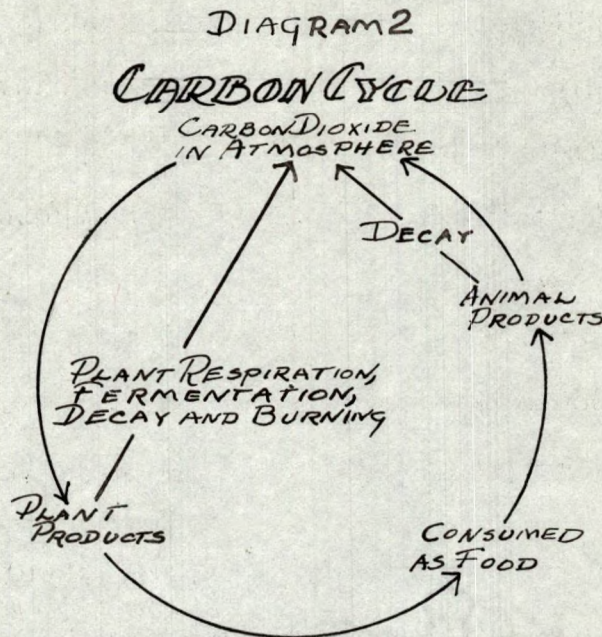 DIAGRAM 2
CARBON CYCLE
CARBON DIOXIDE
IN ATMOSPHERE
DECAY
ANIMAL
PRODUCTS
PLANT RESPIRATION,
FERMENTATION,
DECAY AND BURNING
PLANT
PRODUCTS
CONSUMED
AS FOOD